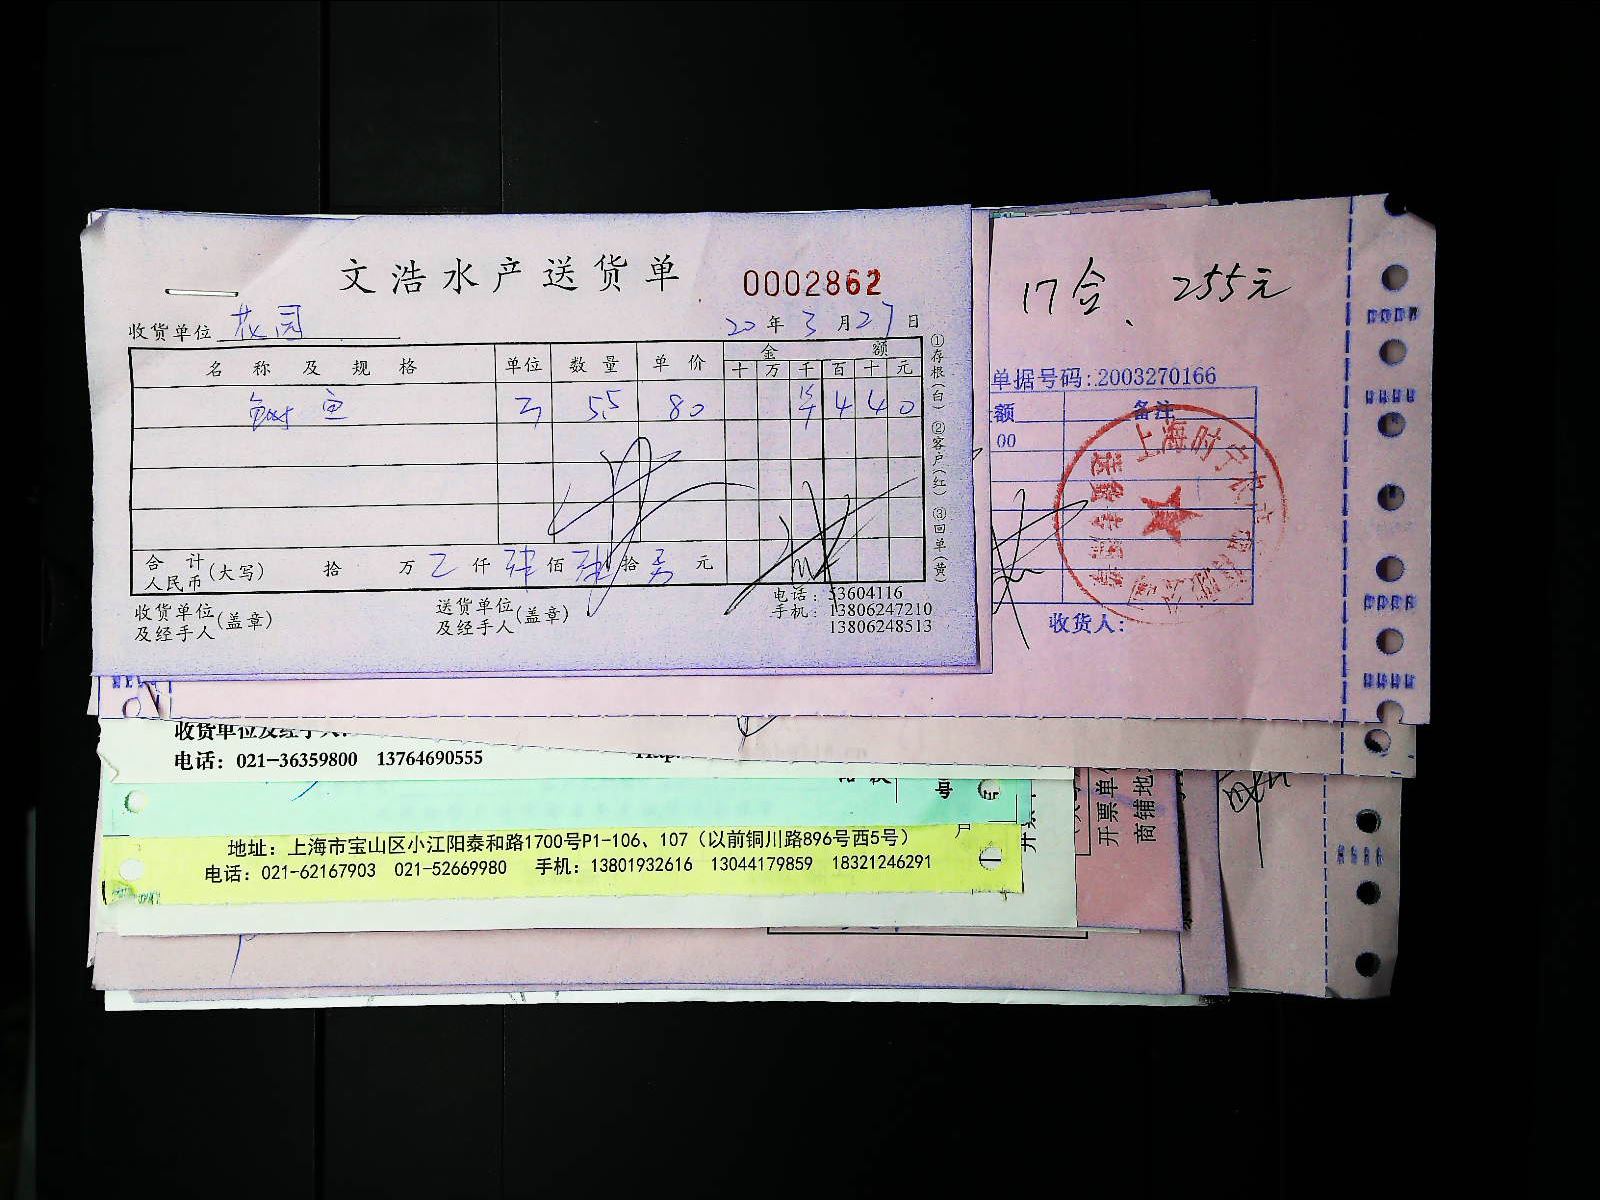 文浩水产送货单
0002862
收货单位 花园
20年3月27日
名称及规格 单位 数量 单价 金额
十万千百十元
鱼 5.5 80 ¥440
合计人民币(大写) 拾 万 仟 佰 拾 元
收货单位及经手人(盖章)
送货单位及经手人(盖章)
电话:53604116
手机:13806247210
13806248513
①存根(白) ②客户(红) ③回单(黄)
17合、 255元
单据号码:2003270166
额 备注
00
上海时
收货人:
收货单位及经手人:
电话:021-36359800 13764690555
号
户
地址:上海市宝山区小江阳泰和路1700号P1-106、107(以前铜川路896号西5号)
电话:021-62167903 021-52669980 手机:13801932616 13044179859 18321246291
开票单
商铺地